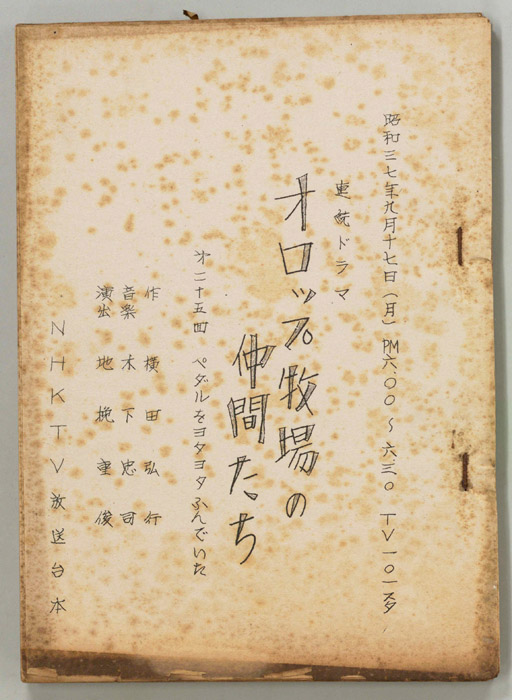 昭和三七年九月十七日(月) PM六.〇〇~六.三〇 TV一〇一スタ
連続ドラマ
オロップ牧場の
仲間たち
第二十五回 ペダルをヨタヨタふんでいた
作 横田弘行
音楽 木下忠司
演出 地挽重俊
NHKTV放送台本